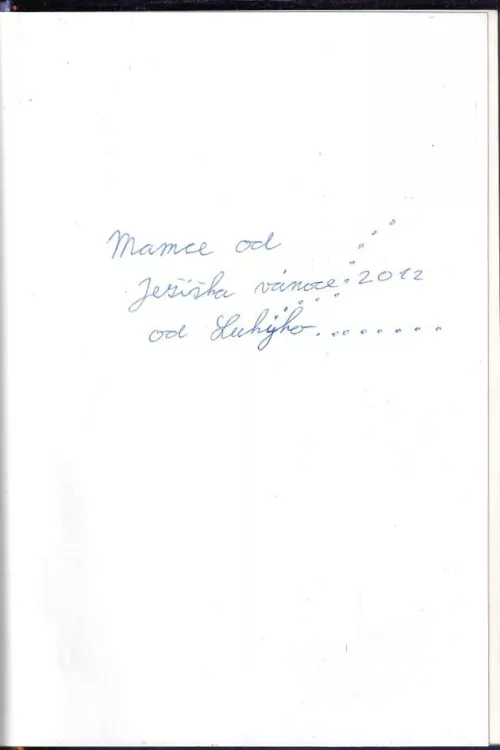 Mamce od
Ježiška vánoce 2012
od Lukýho.........